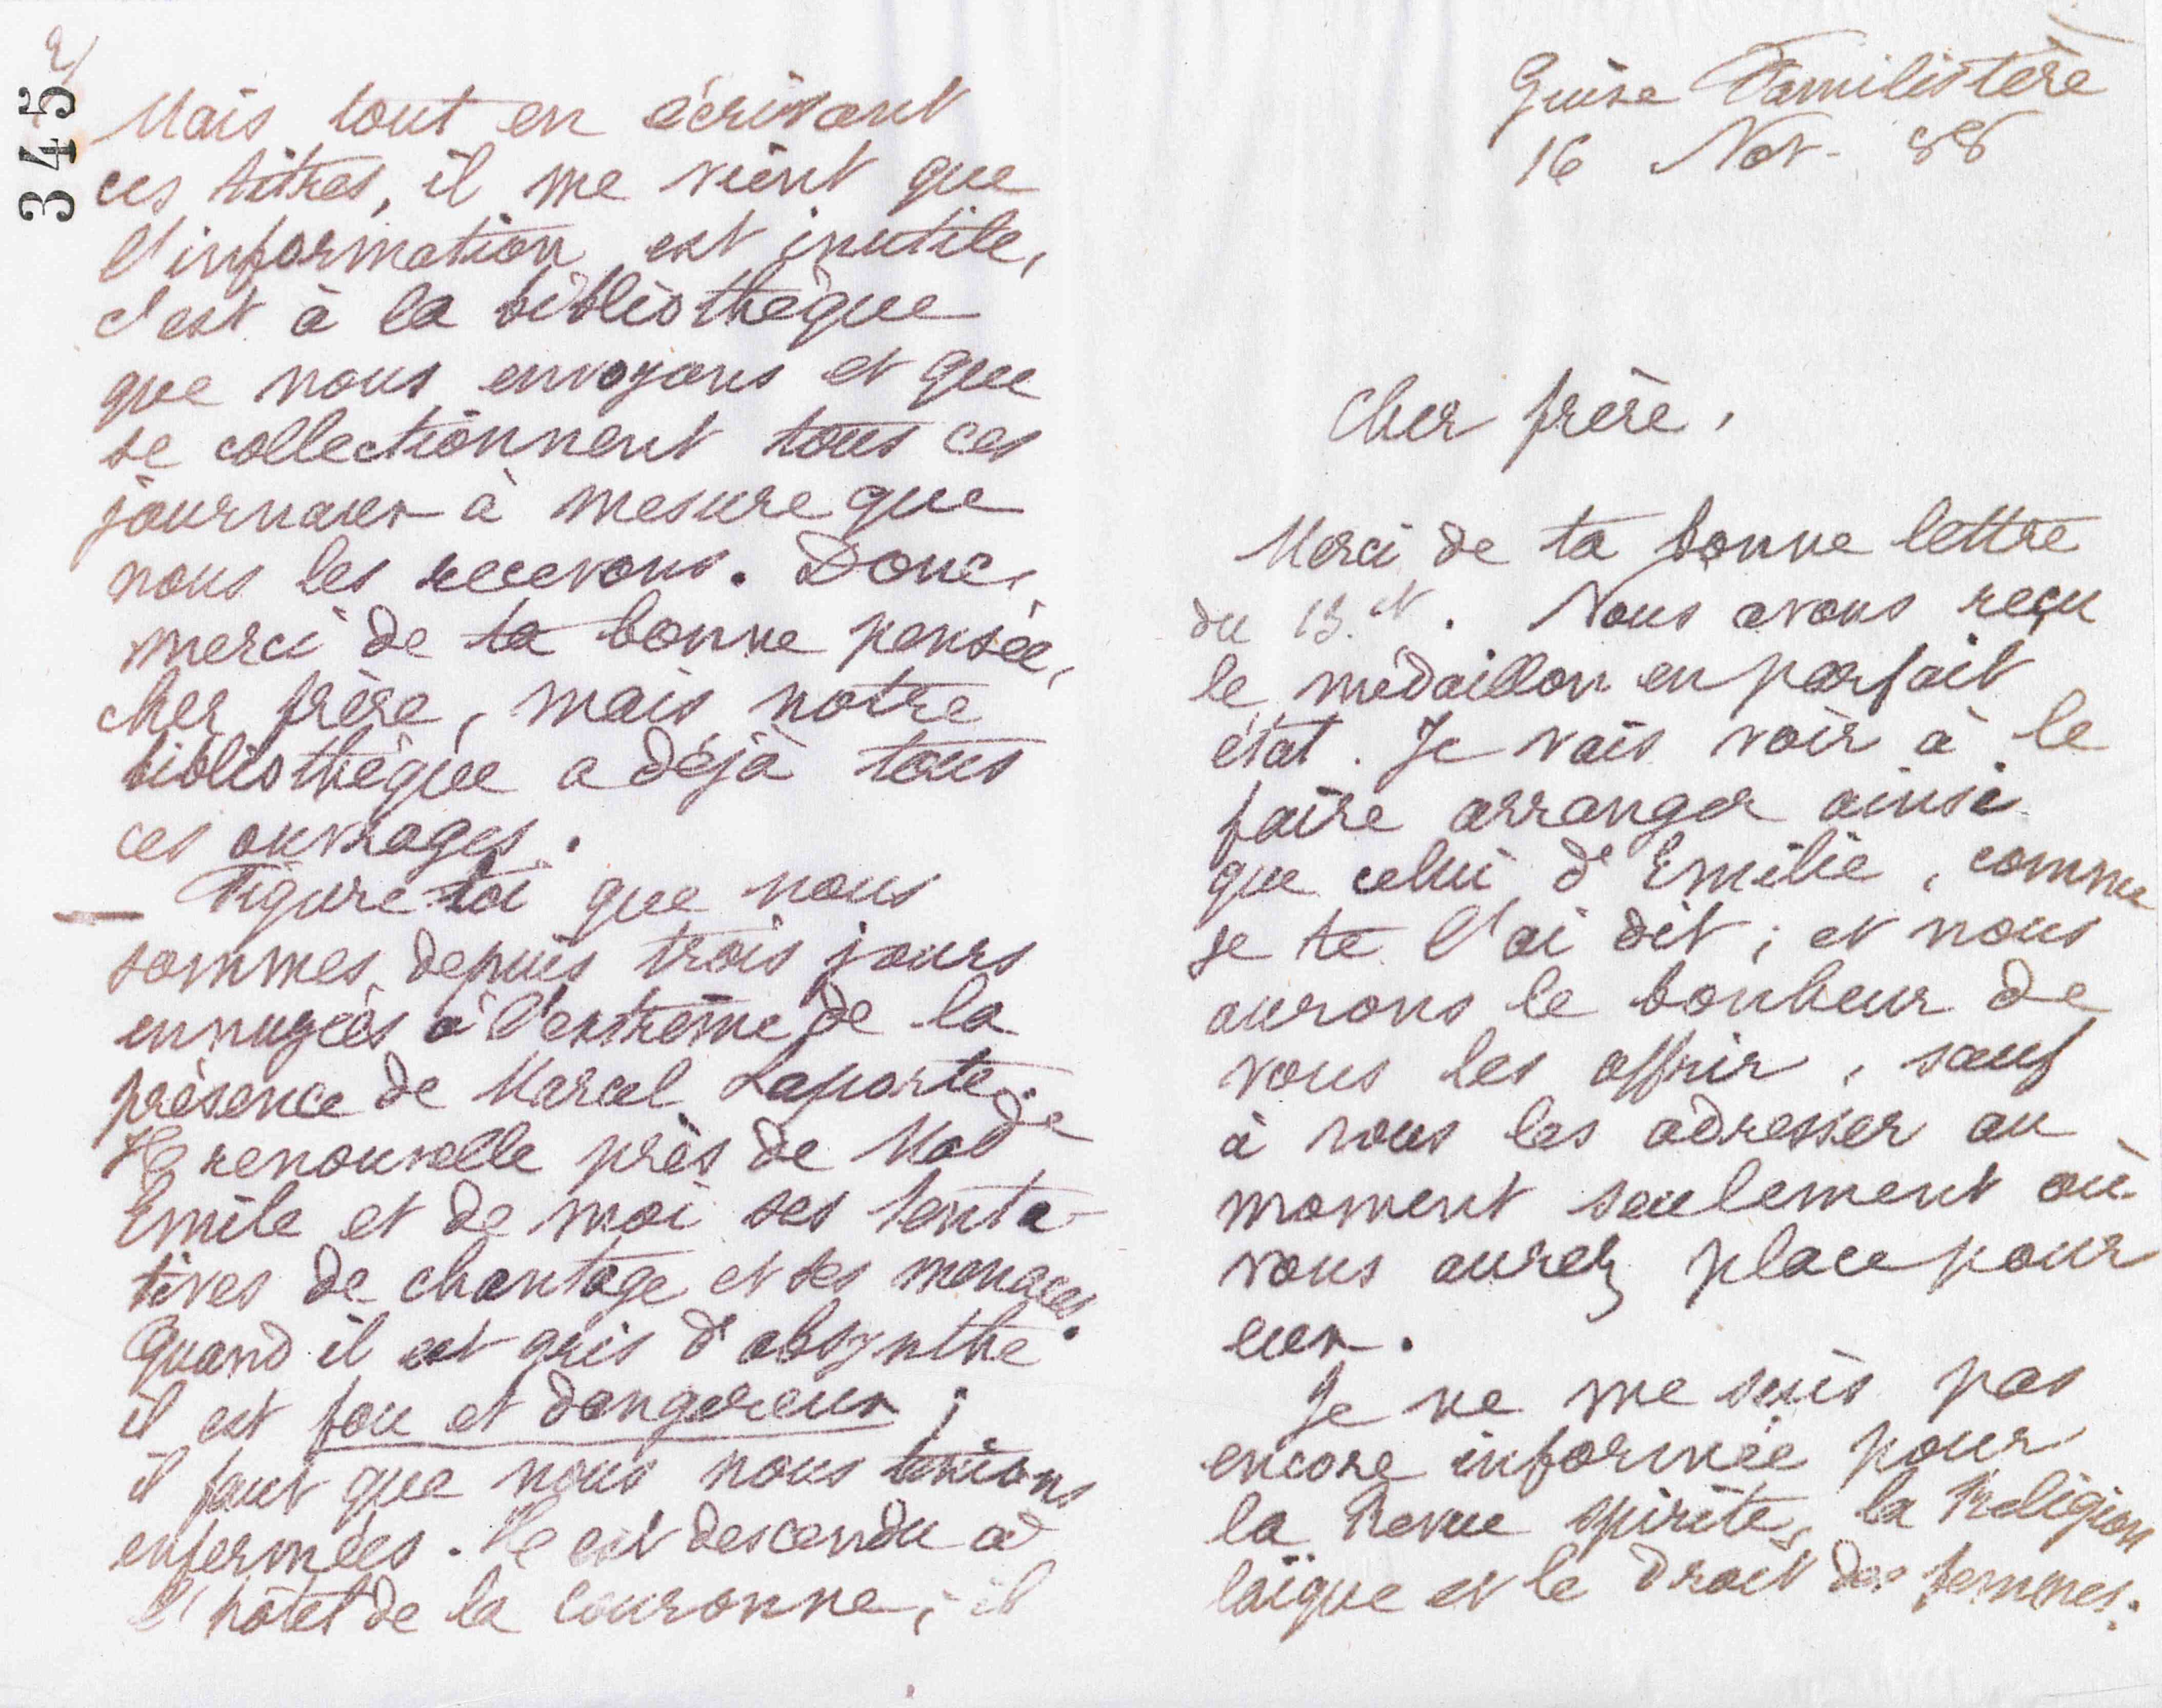 Guise Familistère
16 Nov. 88
Cher frère,
Merci de ta bonne lettre
du 13. ct. Nous avons reçu
le médaillon en parfait
état. Je vais voir à le
faire arranger ainsi
que celui d'Emilie, comme
je te l'ai dit; et nous
aurons le bonheur de
vous les offrir, sauf
à vous les adresser au
moment seulement où
vous aurez place pour
eux.
Je ne me suis pas
encore informée pour
la Revue spirite, la Religion
laïque et le Droit des femmes.
345
2/
Mais tout en écrivant
ces titres, il me vient que
l'information est inutile,
c'est à la bibliothèque
que nous envoyons et que
se collectionnent tous ces
journaux à mesure que
nous les recevons. Donc,
merci de ta bonne pensée,
cher frère, mais notre
bibliothèque a déjà tous
ces ouvrages.
— Figure-toi que nous
sommes depuis trois jours
ennuyées à l'extrême de la
présence de Marcel Laporte.
Il renouvelle près de Made
Emile et de moi ses tenta-
tives de chantage et ses menaces.
Quand il est gris d'absynthe
il est fou et dangereux;
il faut que nous nous tenions
enfermées. Il est descendu à
l'hôtel de la Couronne; il